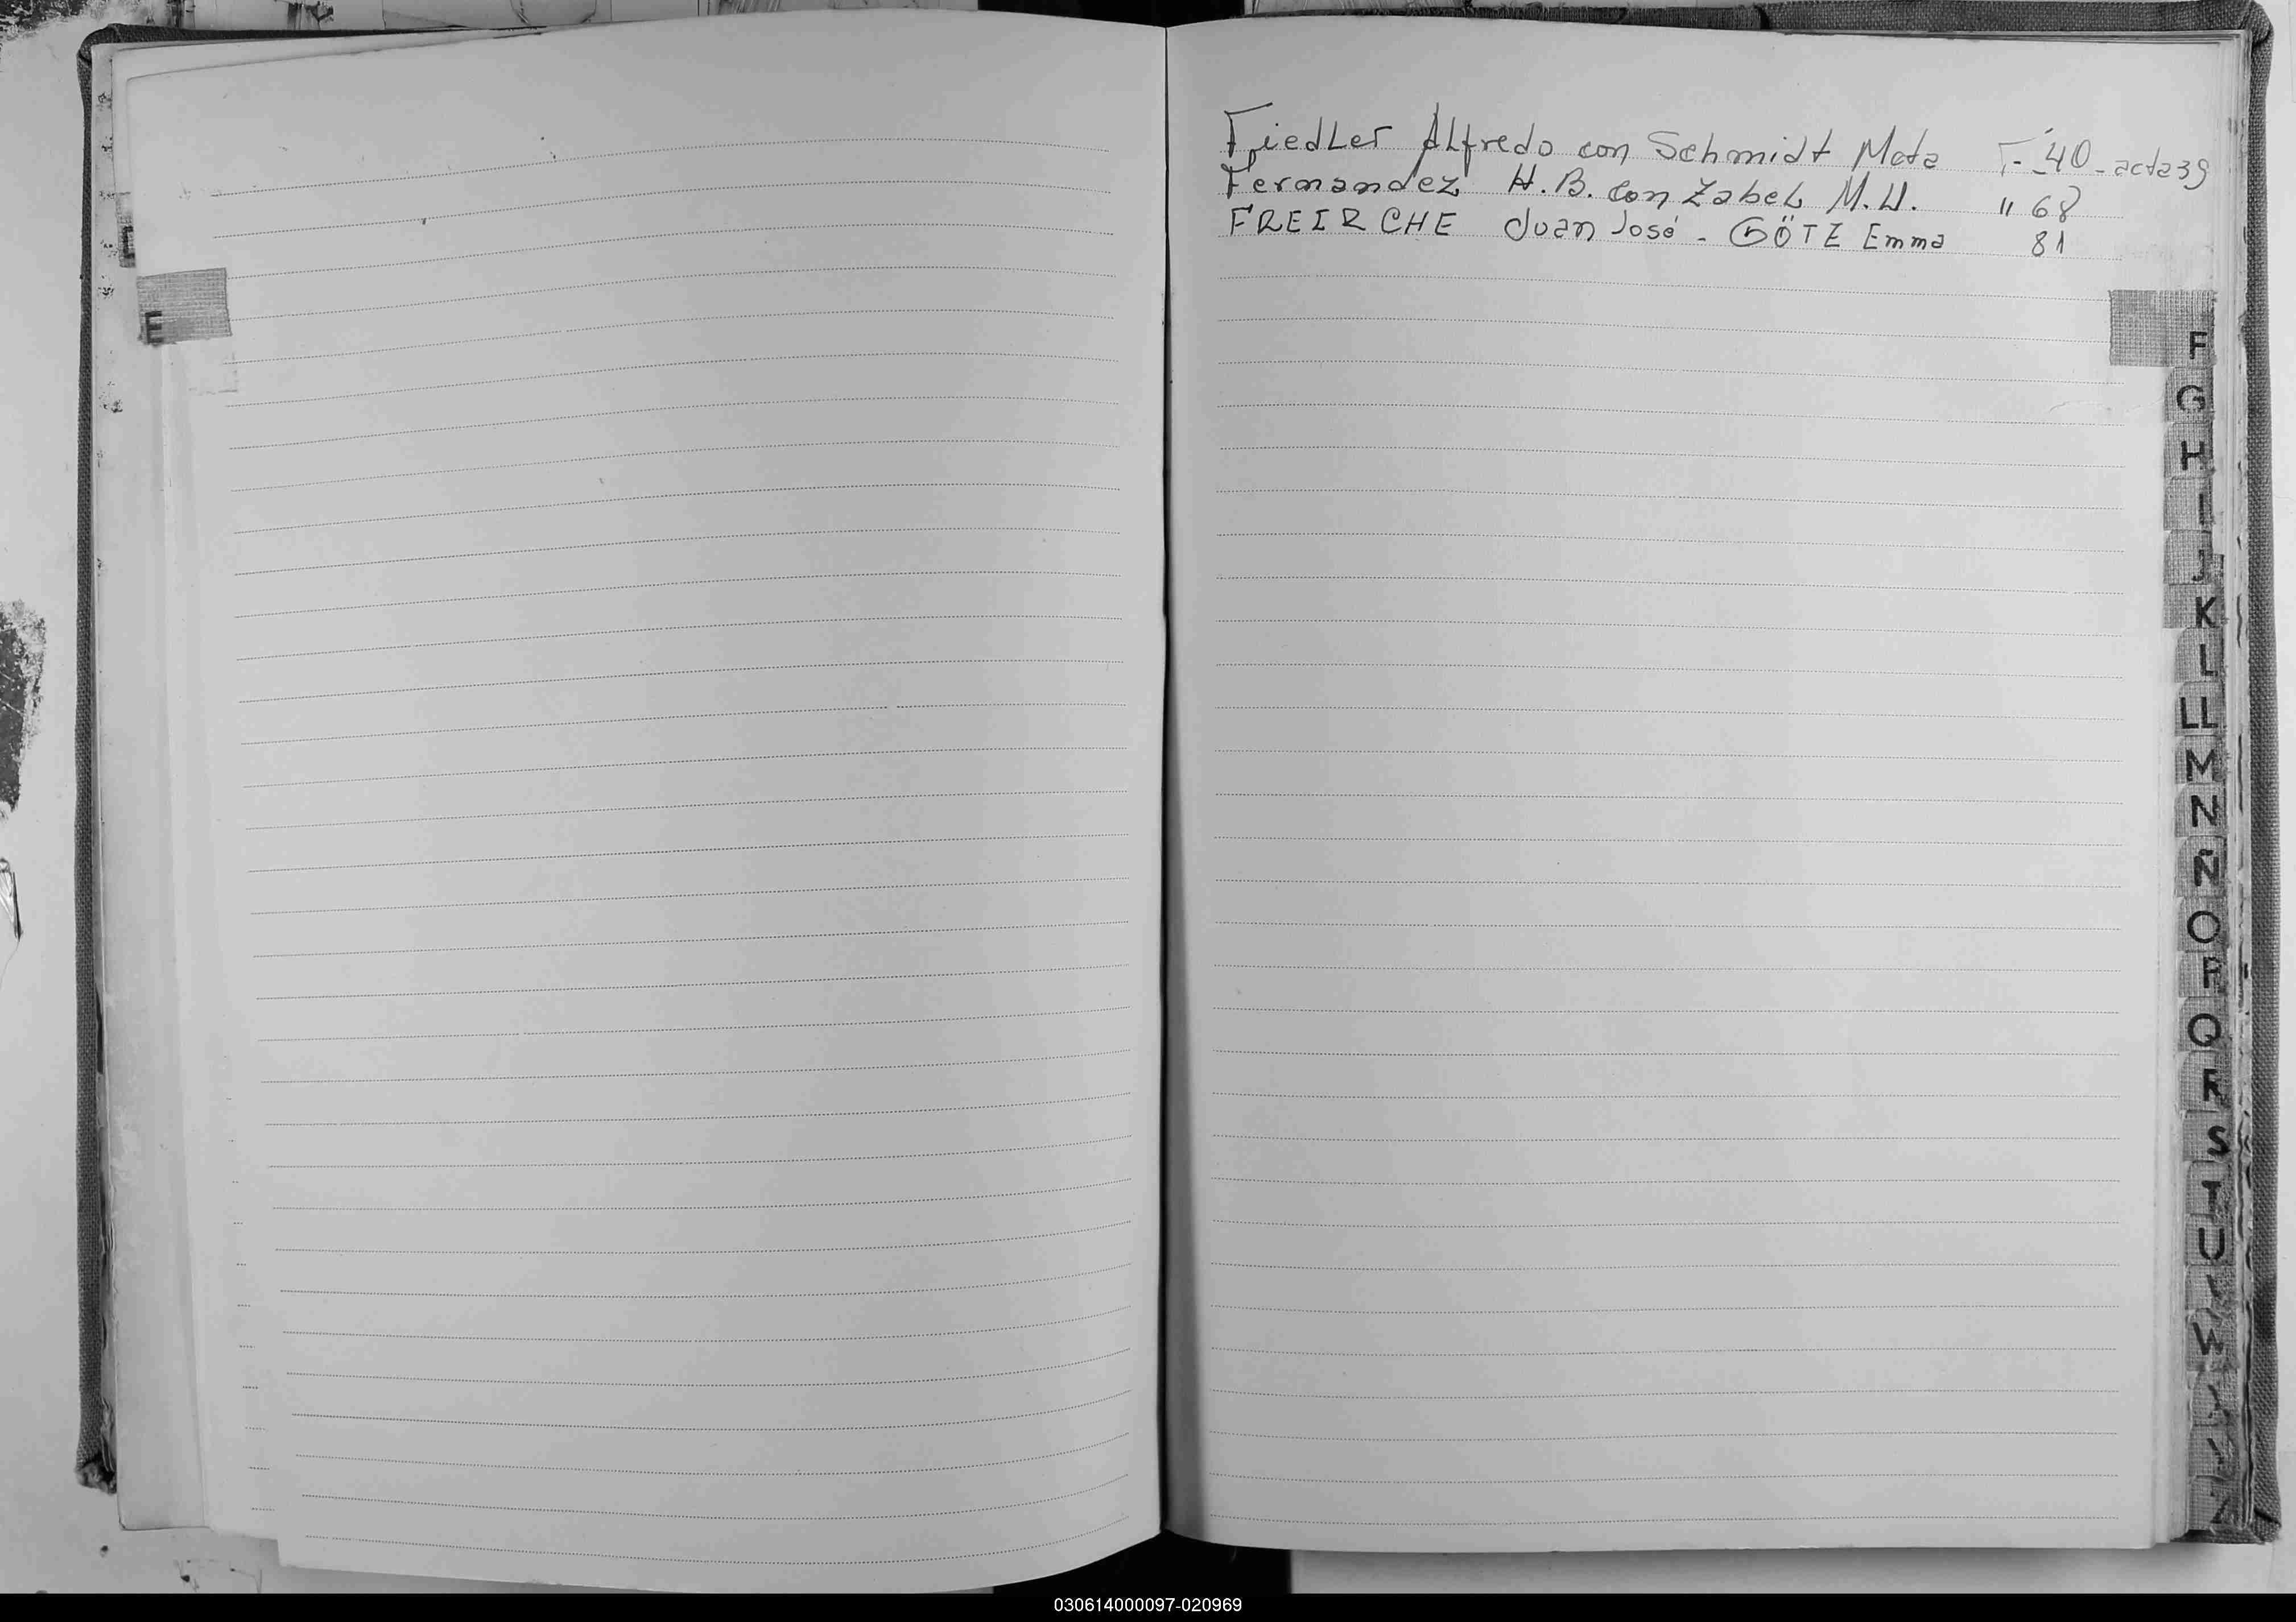 Fiedler Alfredo con Schmidt Meta F- 40 - acta 39
Fernandez H.B. con Zabel M.H. " 68
FREIRCHE Juan José - GÖTZ Emma 81
E
F
G
H
I
J
K
L
LL
M
N
Ñ
O
P
Q
R
S
T
U
W
Z
030614000097-020969